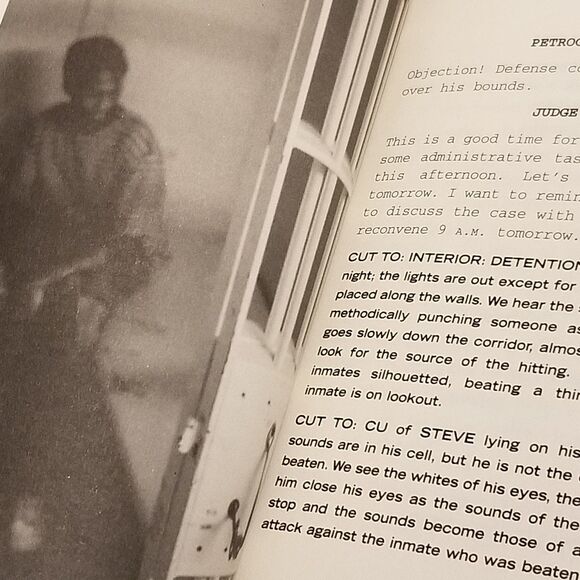 PETROC
Objection! Defense co
over his bounds.
JUDGE
This is a good time for
some administrative tas
this afternoon. Let's
tomorrow. I want to remin
to discuss the case with
reconvene 9 A.M. tomorrow.
CUT TO: INTERIOR: DETENTION
night; the lights are out except for
placed along the walls. We hear the s
methodically punching someone as
goes slowly down the corridor, almos
look for the source of the hitting.
inmates silhouetted, beating a thir
inmate is on lookout.
CUT TO: CU of STEVE lying on his
sounds are in his cell, but he is not the
beaten. We see the whites of his eyes, the
him close his eyes as the sounds of the
stop and the sounds become those of a
attack against the inmate who was beaten